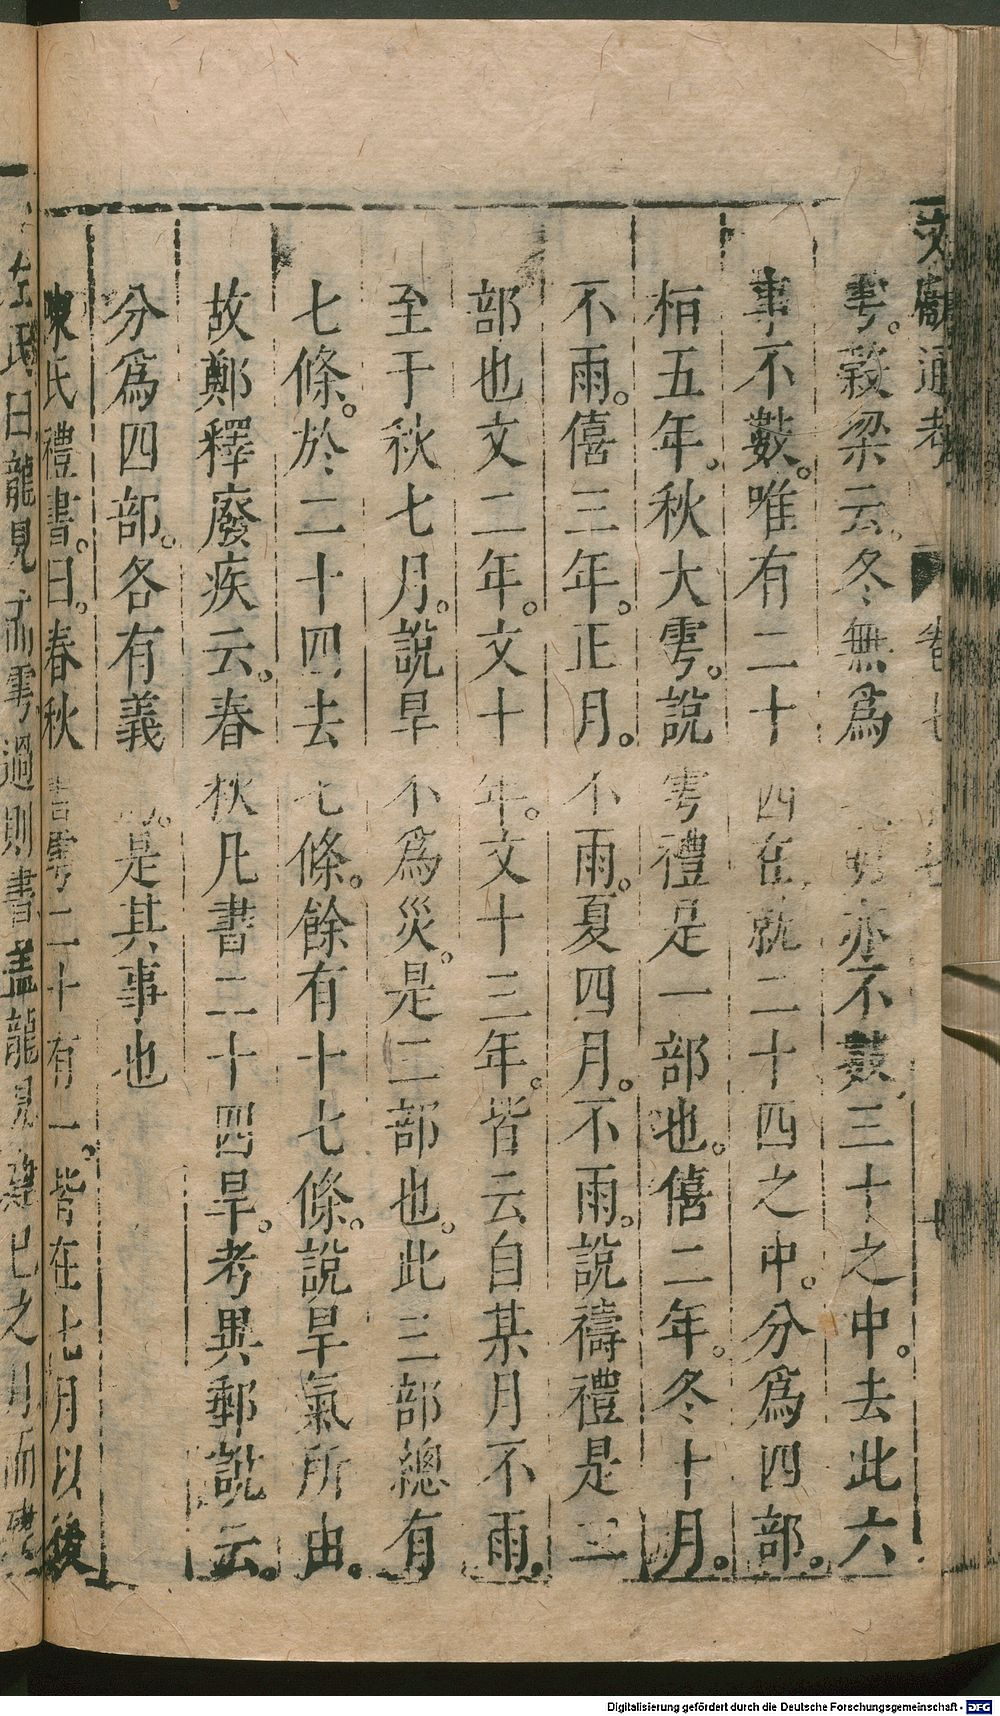 文獻通考 卷七
雩。穀梁云。冬無爲雩亦不數。三十之中。去此六
事不數。唯有二十四在。就二十四之中。分爲四部。
桓五年。秋大雩。說雩禮是一部也。僖二年。冬十月。
不雨。僖三年。正月。不雨。夏四月。不雨。說禱禮是二
部也文二年。文十年。文十三年。皆云自某月不雨。
至于秋七月。說旱不爲災。是三部也。此三部總有
七條。於二十四去七條。餘有十七條。說旱氣所由。
故鄭釋廢疾云。春秋凡書二十四旱。考異郵說云。
分爲四部。各有義焉。是其事也
陳氏禮書。曰。春秋書雩二十有一。皆在七月以後
左氏曰龍見而雩過則書蓋龍見建巳之月而
Digitalisierung gefördert durch die Deutsche Forschungsgemeinschaft - DFG